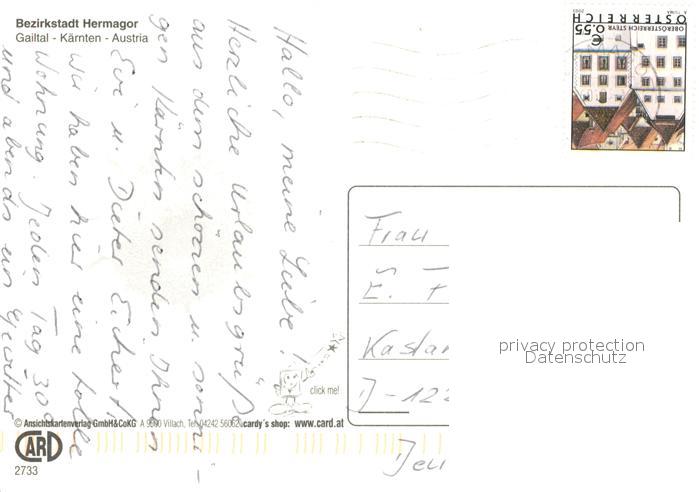 Bezirkstadt Hermagor
Gailtal - Kärnten - Austria
A. TUMA 2003
ÖSTERREICH
OBERÖSTERREICH STEYR
€ 0.55
Hallo, meine Liebe!
Herzliche Urlaubsgrüße
aus dem schönen u. sonni-
gen Kärnten senden Ihnen
Evi u. Dieter
Wir haben hier eine tolle
Wohnung. Jeden Tag 30°
und abends ein Gewitter
Frau
Kastan
D-122
privacy protection
Datenschutz
click me!
© Ansichtskartenverlag GmbH&CoKG A 9500 Villach, Tel. 04242 56062 cardy's shop: www.card.at
CARD
2733